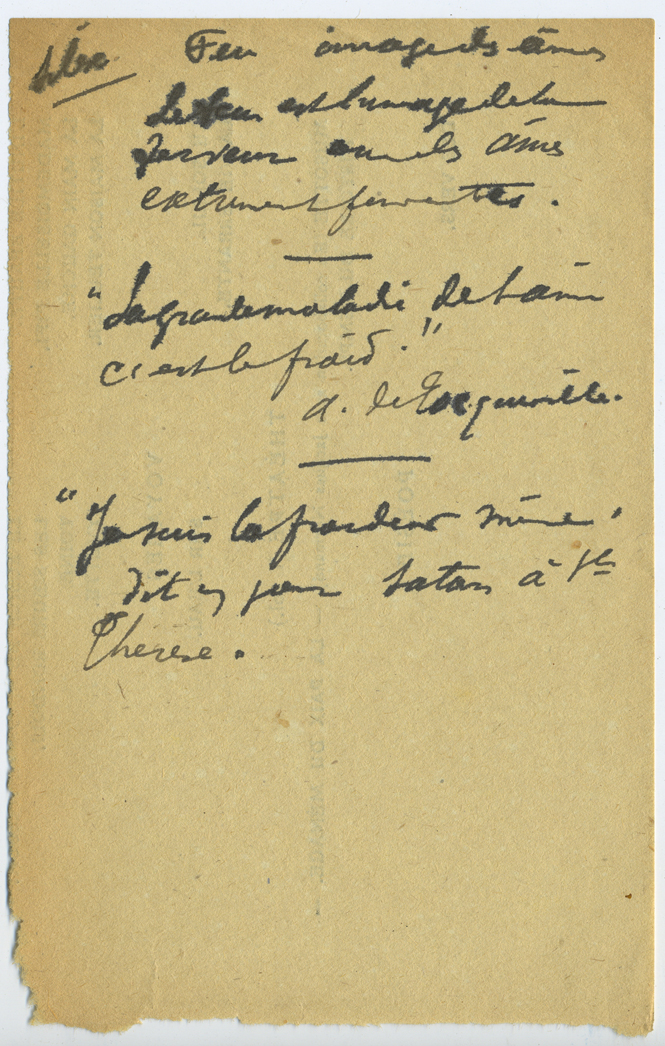 Feu image des âmes
Le feu est l'image de la
ferveur ou des âmes
extrêmement ferventes.
"La grande maladie de l'âme
c'est le froid."
A. de Tocqueville.
"Je suis la froideur même"
dit un jour Satan à Ste
Thérèse.